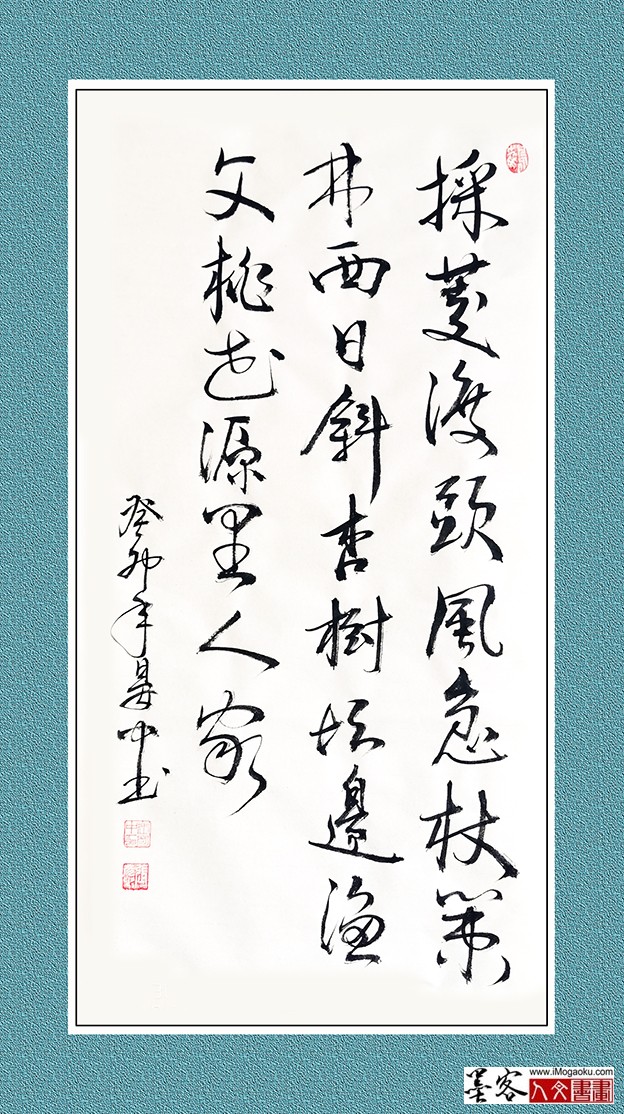 採菱渡頭風急杖策
林西日斜杏樹坛邊漁
父桃花源里人家
癸卯年晏中书
墨客
www.iMogaoku.com
人文書畫